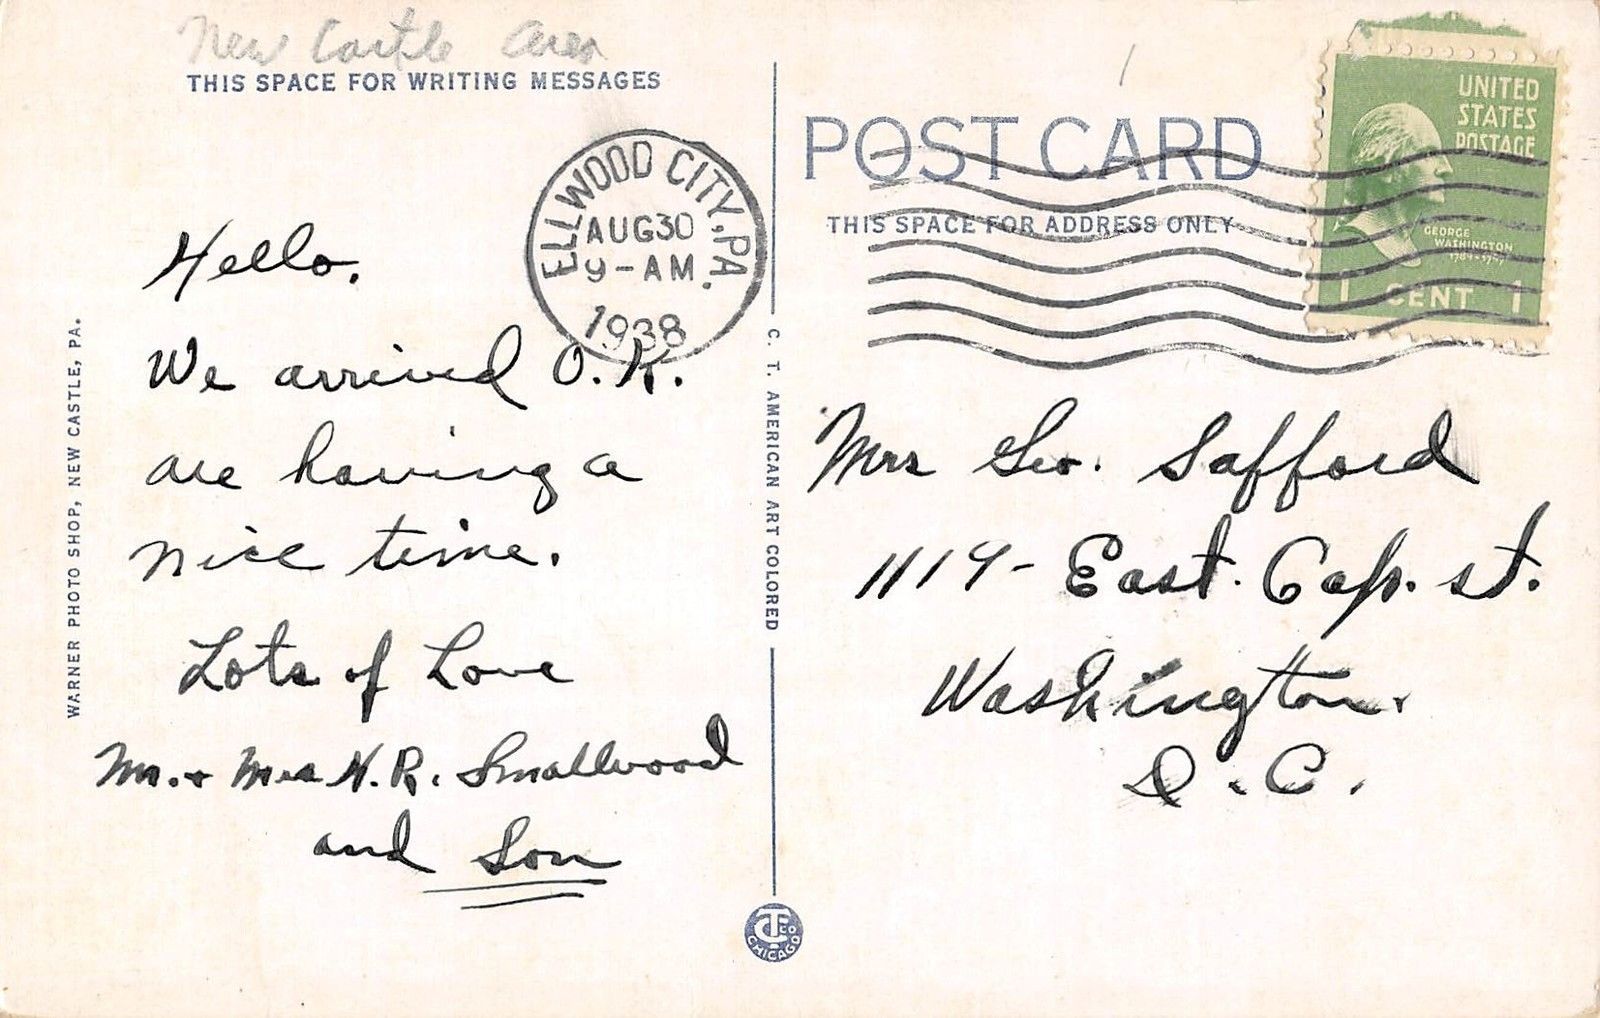 New Castle Area
THIS SPACE FOR WRITING MESSAGES
ELLWOOD CITY, PA.
AUG 30
9-AM
1938
Hello.
We arrived O.K.
are having a
nice time.
Lots of Love
Mr. + Mrs H. R. Smallwood
and Son
WARNER PHOTO SHOP, NEW CASTLE, PA.
C. T. AMERICAN ART COLORED
CTCO
CHICAGO
POST CARD
THIS SPACE FOR ADDRESS ONLY
UNITED
STATES
POSTAGE
GEORGE
WASHINGTON
1789-1797
1 CENT 1
Mrs Geo. Safford
1119- East. Cap. st.
Washington.
D.C.